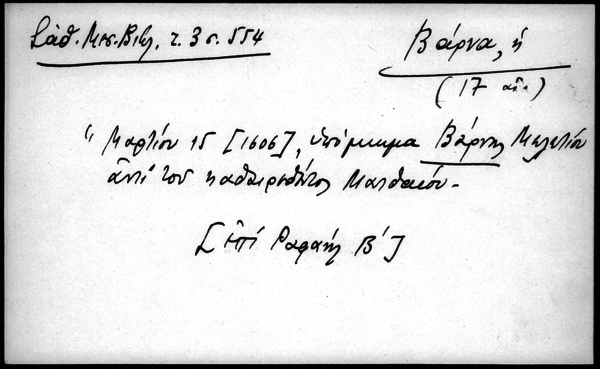 Σάθ. Μεσ. Βιβλ. τ. 3 σ. 554
Βάρνα, ἡ
(17 αἰ.)
"Μαρτίου 15 [1606], ὑπόμνημα Βάρνης Μελετίου
ἀντί τοῦ καθαιρεθέντος Ματθαίου.
[ἐπί Ραφαήλ Β']